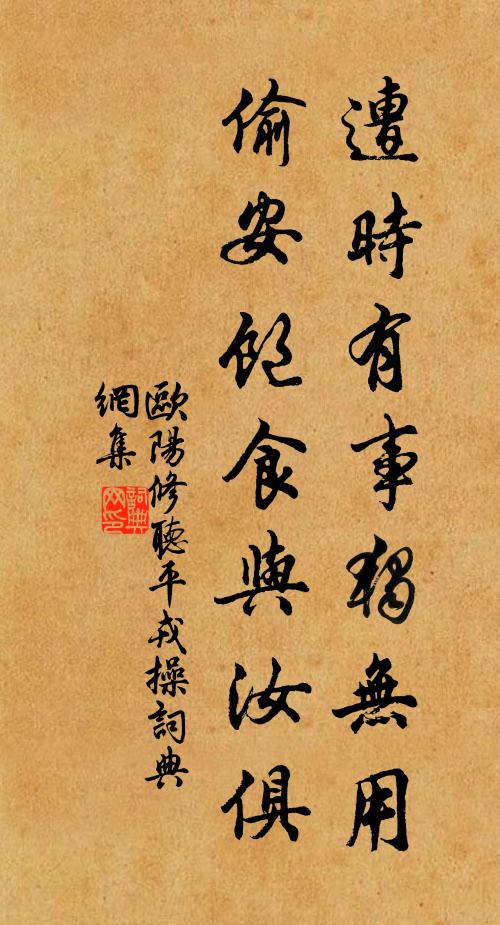 遭時有事獨無用
偷安飽食與汝俱
歐陽修聽平戎操詞典
網集
詞典
網印